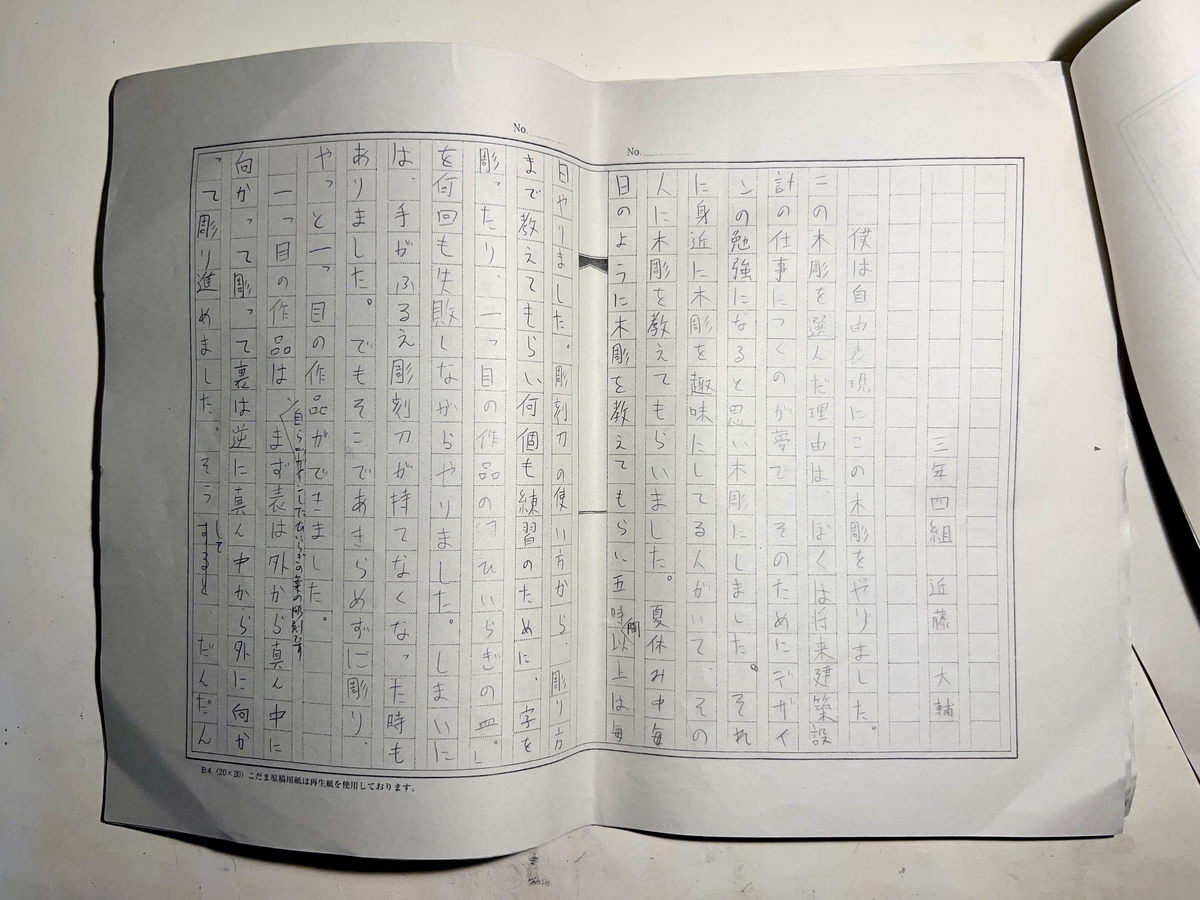 No.
三年四組　近藤　大輔
僕は自由表現にこの木彫をやりました。
この木彫を選んだ理由は、ぼくは将来建築設
計の仕事につくのが夢で、そのためにデザイ
ンの勉強になると思い木彫にしました。それ
に身近に木彫を趣味にしてる人がいて、その
人に木彫を教えてもらいました。夏休み中毎
日のように木彫を教えてもらい五時間以上は毎
No.
日やりました。彫刻刀の使い方から、彫り方
まで教えてもらい何個も練習のために、字を
彫ったり、一つ目の作品のひいらぎの皿。
を何回も失敗しながらやりました。しまいに
は、手がふるえ彫刻刀が持てなくなった時も
ありました。でもそこであきらめずに彫り、
やっと一つ目の作品ができました。
一つ目の作品は、まず表は外から真ん中に
自らデザインしたひいらぎの葉の彫刻で
向かって彫って裏は逆に真ん中から外に向か
って彫り進めました。そうすると、だんだん
して
B4（20×20）こだま原稿用紙は再生紙を使用しております。